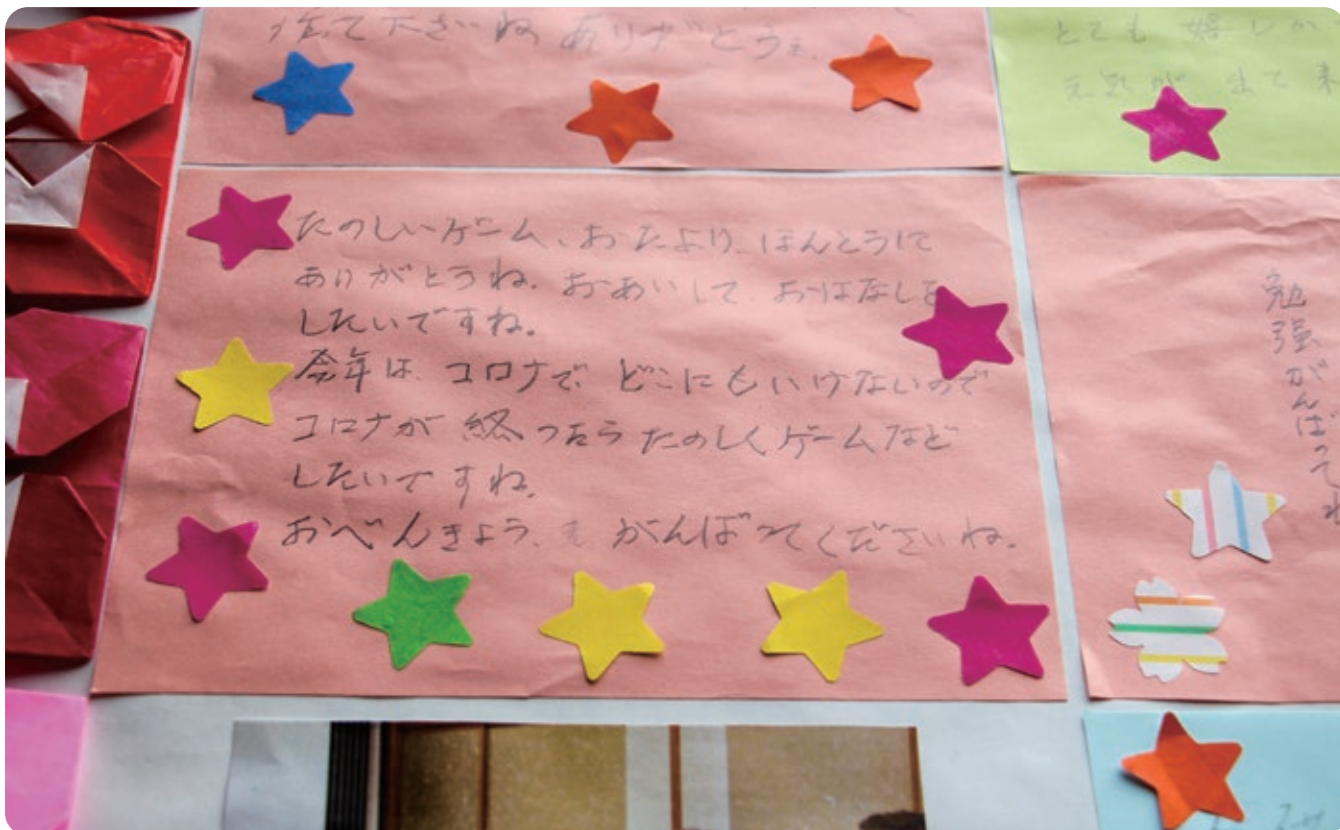 作て下さいね ありがとうネ
とても 嬉しか
元気が 出て来
たのしいゲーム、おたより、ほんとうに
ありがとうね。おあいして、おはなしを
したいですね。
今年は、コロナで どこにもいけないので
コロナが 終ったら たのしくゲームなど
したいですね。
おべんきょう、も がんばってくださいね。
勉強がんばってね